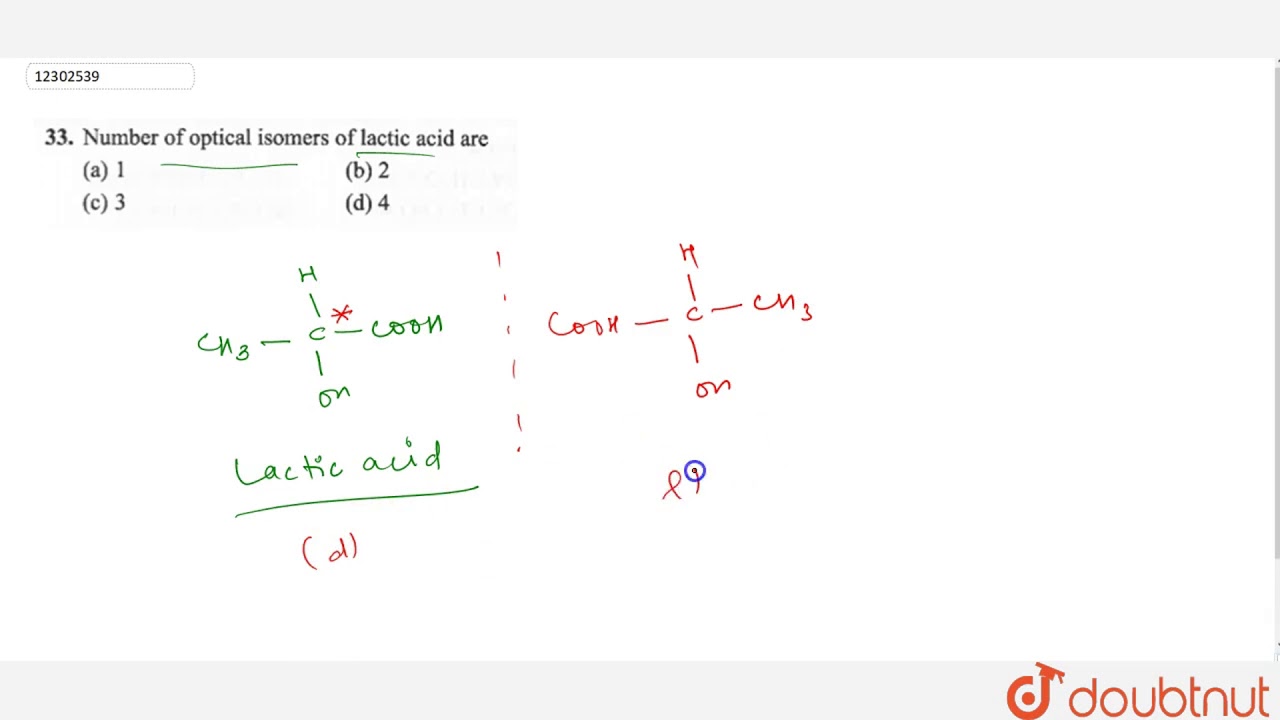 12302539
33. Number of optical isomers of lactic acid are
(a) 1 (b) 2
(c) 3 (d) 4
H H
CH3 — C* — COOH COOH — C — CH3
OH OH
Lactic acid
(d)
doubtnut